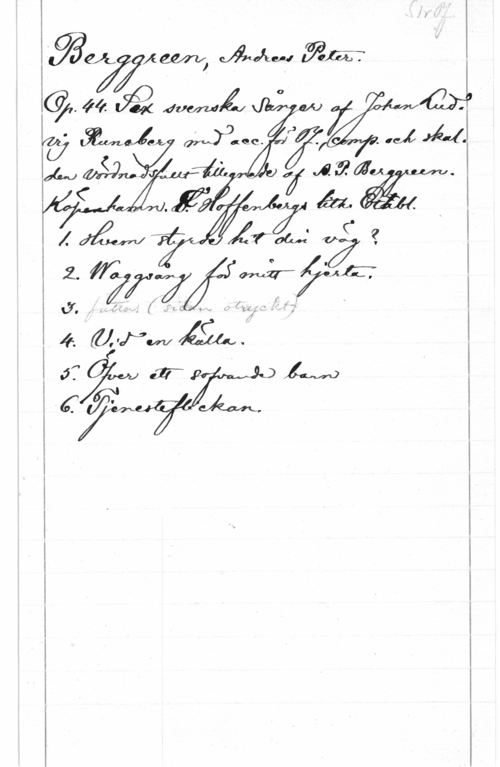 S1v Pf.
Berggreen, Andreas Peter.
Op. 44. Sex svenska Sånger af Johan Lud-
vig Runeberg med acc. för Pf., comp. och skal-
den vördnadsfullt tillegnade af A. P. Berggreen.
Köpenhamn. Hoffenbergs lith. Etabl.
1. Hvem styrde hit din väg?
2. Waggsång för mitt hjerta.
3. fattas (sidan otryckt)
4. Vid en källa.
5. Öfver ett sofvande barn
6. Tjensteflickan.